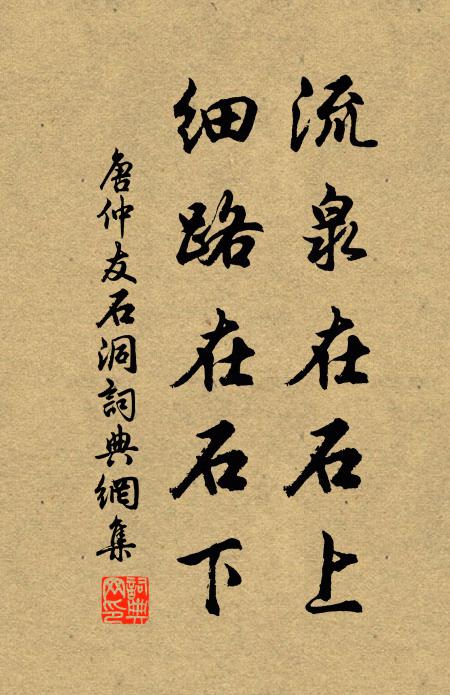 流泉在石上
细路在石下
唐仲友石洞詞典網集
詞典网印